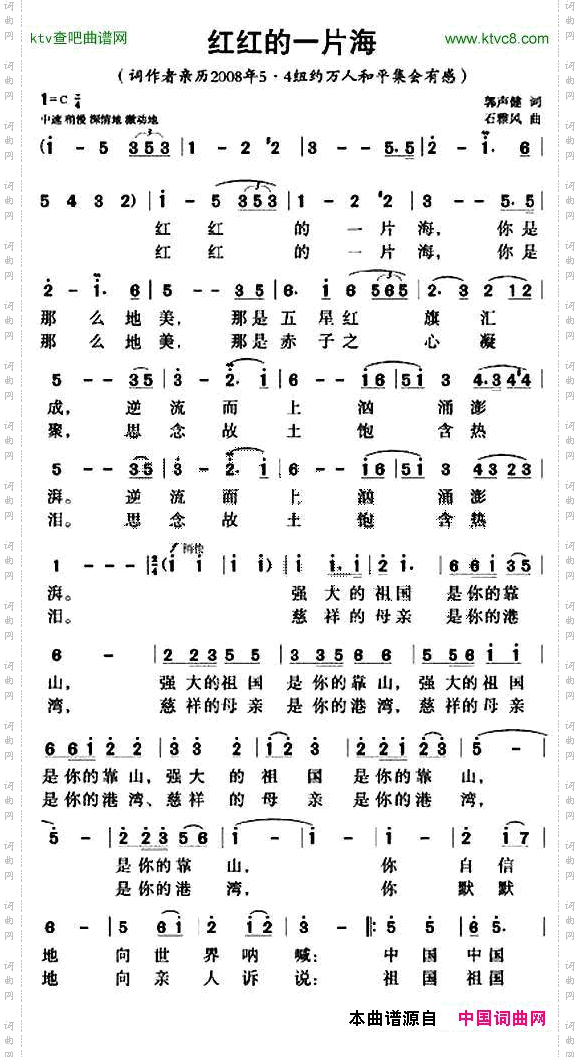 ktv查吧曲谱网
红红的一片海
www.ktvc8.com
(词作者亲历2008年5·4纽约万人和平集会有感)
1=C 2/4
郭声健 词
中速 稍慢 深情地 激动地
石雅风 曲
(i - 5 353 | 1 - 2 2 | 3 - - 5.5 | 2 - 1. 6 |
5 4 3 2) | i - 5 353 | 1 - 2 2 | 3 - - 5.5 |
红 红 的 一 片 海, 你是
红 红 的 一 片 海, 你是
2 - i. 6 | 5 - - 35 | 6. i 6 565 | 2. 3 2 12 |
那 么 地 美, 那是 五 星 红 旗 汇
那 么 地 美, 那是 赤 子 之 心 凝
5 - - 35 | 3 - 2. i | 6 - - i6 | 5i 3 4.3 44 |
成, 逆 流 而 上 汹 涌 澎
聚, 思 念 故 土 饱 含 热
5 - - 35 | 3 - 2. i | 6 - - i6 | 5i 3 43 23 |
湃。 逆 流 而 上 汹 涌 澎
泪。 思 念 故 土 饱 含 热
1 - - - | 2/4 (i i | i i) | i i. i | 2 i. | 66i 35 |
湃。 强 大的 祖国 是你的靠
泪。 慈 祥的 母亲 是你的港
6 - | 2 235 | 5 5 | 335 6 | 556 i i |
山, 强 大的 祖 国 是你的靠 山, 强 大的祖国
湾, 慈 祥的 母 亲 是你的港 湾, 慈 祥的母亲
66i 2 2 | 3 3 2 | i 2 3 | 22i 23 | 5 - |
是你的靠 山, 强 大 的 祖 国 是你的靠 山,
是你的港 湾、 慈 祥 的 母 亲 是你的港 湾,
5 - | 223 56 | 2 - | i - | i - | 2 i7 |
是你的靠 山, 你 自信
是你的港 湾, 你 默默
6 - | 5 6i | 2 i2 | 3 - | 3 - |: 5 5 | 6 5. |
地 向 世 界 呐 喊: 中 国 中国
地 向 亲 人 诉 说: 祖 国 祖国
本曲谱源自 中国词曲网